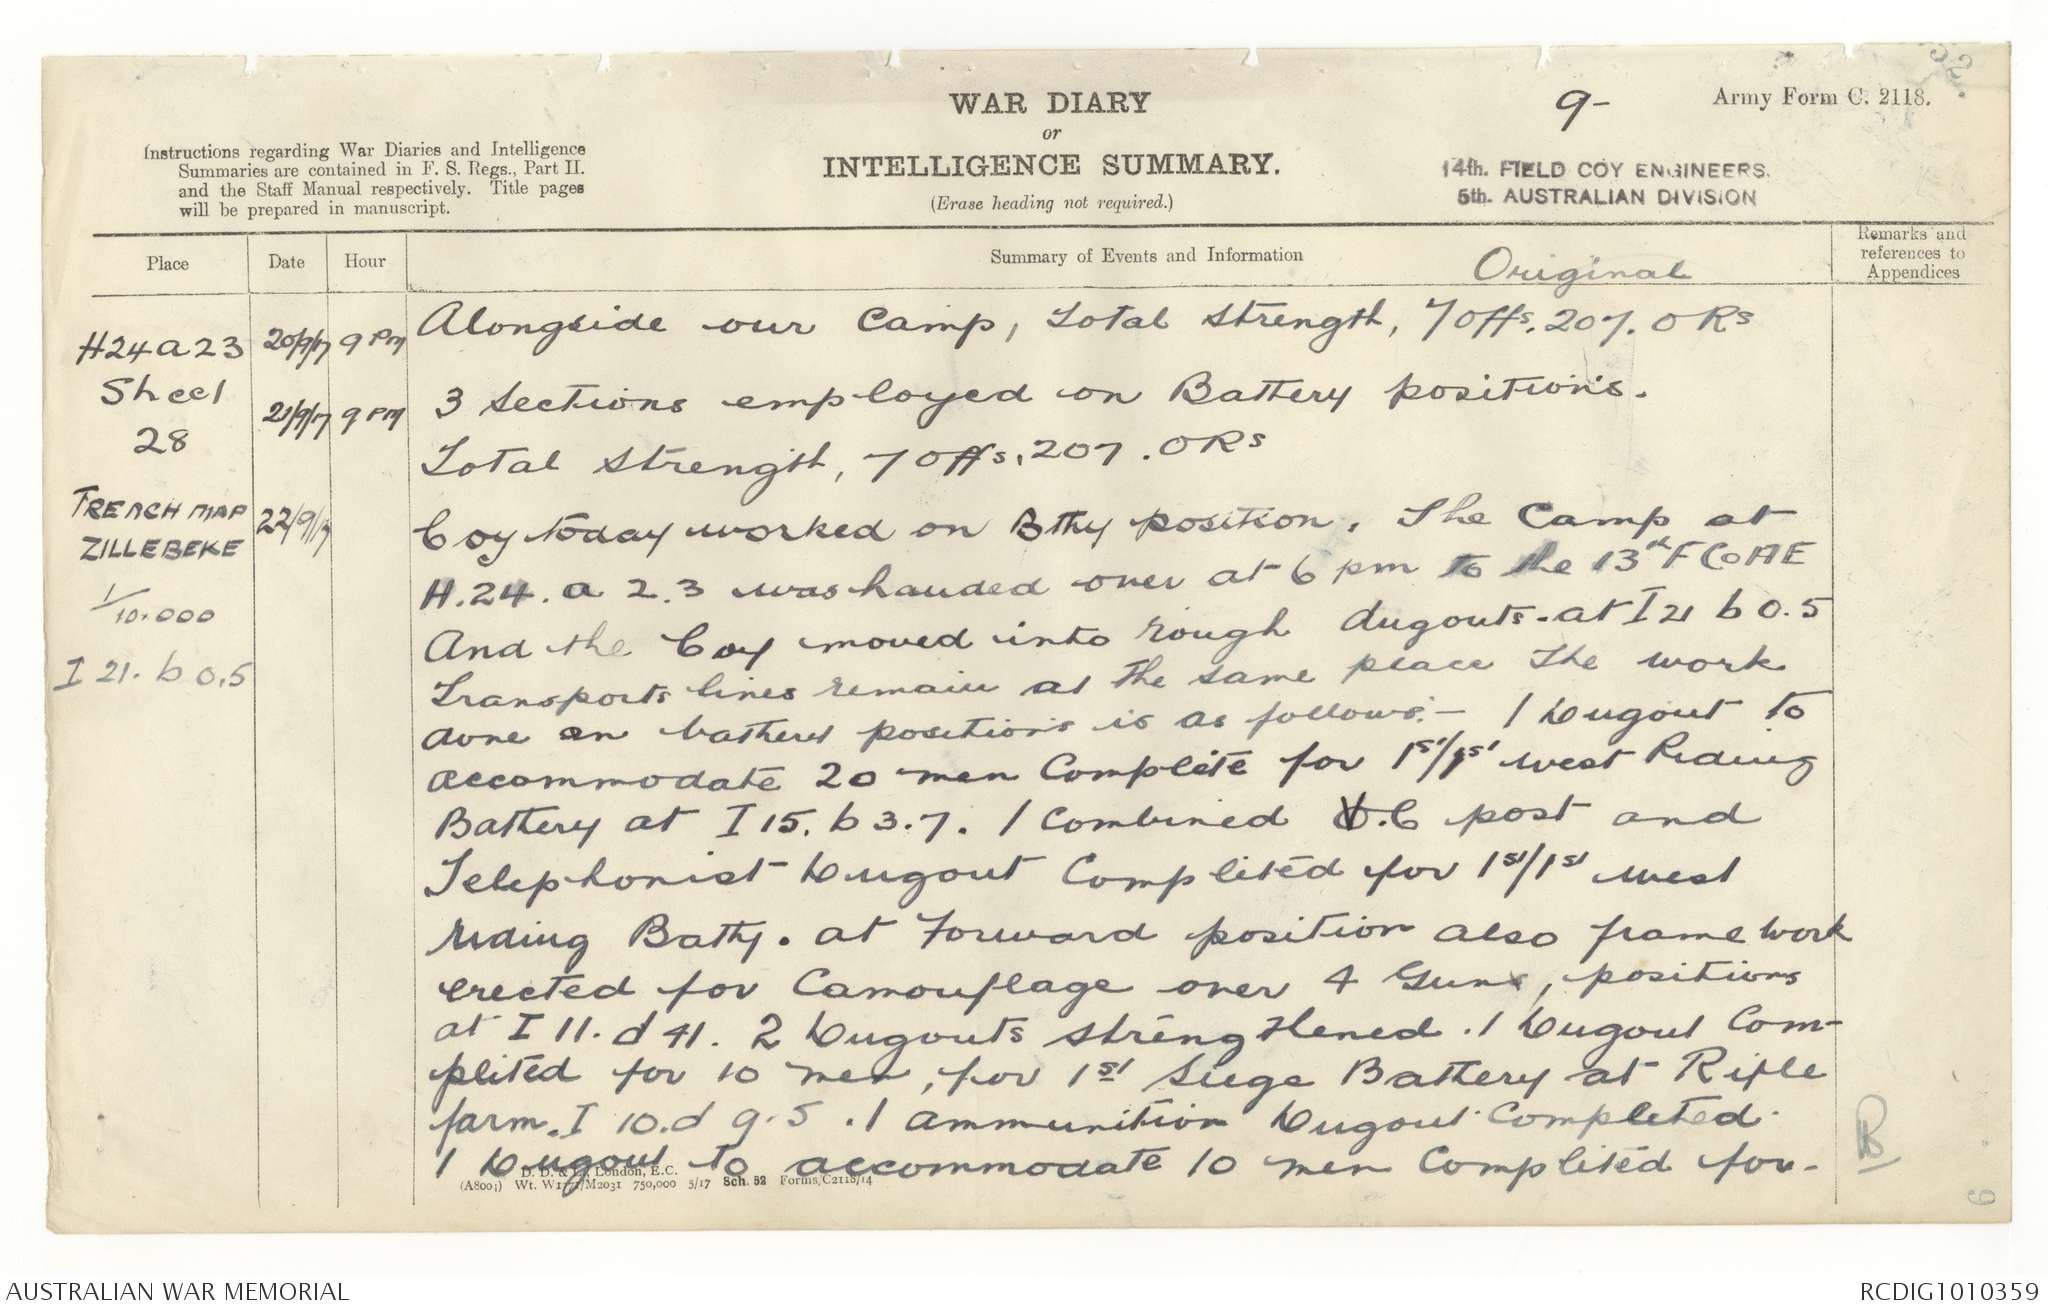 52.
WAR DIARY
or
INTELLIGENCE SUMMARY.
(Erase heading not required.)
9-
Army Form C. 2118.
Instructions regarding War Diaries and Intelligence
Summaries are contained in F. S. Regs., Part II.
and the Staff Manual respectively. Title pages
will be prepared in manuscript.
14th. FIELD COY ENGINEERS.
5th. AUSTRALIAN DIVISION
Place
Date
Hour
Summary of Events and Information
Original
Remarks and
references to
Appendices
H24a23 20/9/17 9 PM Alongside our Camp, Total Strength, 7 Offs, 207. ORs
Sheet
28
21/9/17 9 PM 3 Sections employed on Battery positions.
Total Strength, 7 Offs, 207. ORs
TRENCH MAP
ZILLEBEKE
1/10.000
I 21. b 0.5
22/9/17 Coy today worked on Bthy position. The Camp at
H.24.a 2.3 was handed over at 6 pm to the 13th F Co AE
And the Coy moved into rough dugouts. at I 21 b 0.5
Transports lines remain at the same place The work
done on battery positions is as follows:- 1 Dugout to
accommodate 20 men Complete for 1st/1st West Riding
Battery at I 15. b 3.7. 1 Combined O.C post and
Telephonist Dugout Complited for 1st/1st West
Riding Batty. at Forward position also frame work
erected for Camouflage over 4 Guns, positions
at I 11. d 41. 2 Dugouts strengthened. 1 Dugout Com-
plited for 10 men, for 1st Siege Battery at Rifle
farm. I 10.d 9.5. 1 Ammunition Dugout Completed.
1 Dugout to accommodate 10 men Complited for-
D. D. & L., London, E.C.
(A8004) Wt. W1771/M2031 750,000 5/17 Sch. 52 Forms/C2118/14
9
AUSTRALIAN WAR MEMORIAL
RCDIG1010359